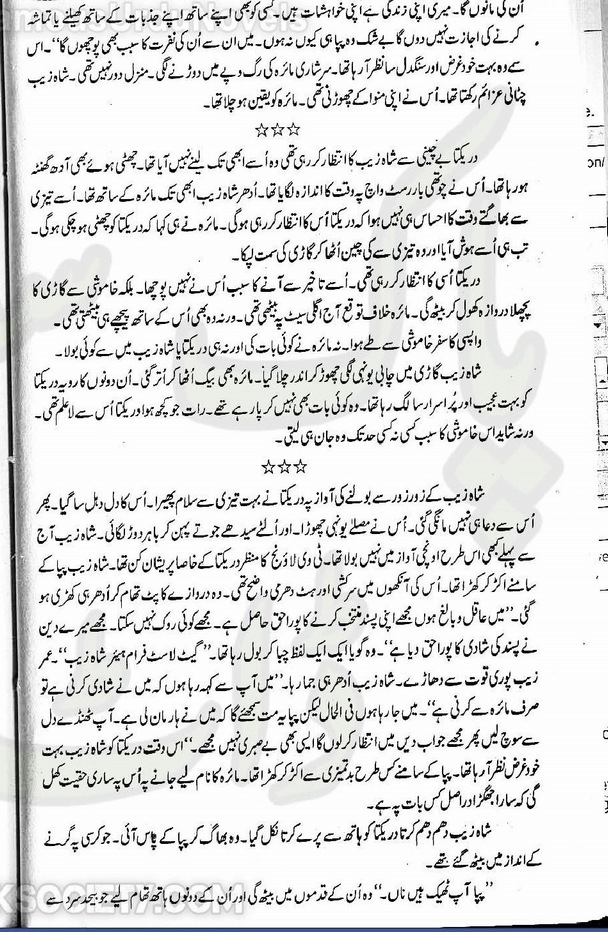 اُن کی مانوں گا۔ میری اپنی زندگی ہے اپنی خواہشات ہیں۔ کسی کو بھی اپنے ساتھ اپنے جذبات کے ساتھ کھیلنے یا تماشہ
کرنے کی اجازت نہیں دوں گا بے شک وہ پپا ہی کیوں نہ ہوں۔ میں ان سے اُن کی نفرت کا سبب بھی پوچھوں گا''۔ اس
سے وہ بہت خود غرض اور سنگدل سا نظر آ رہا تھا۔ سرشاری مائرہ کی رگ و پے میں دوڑنے لگی۔ منزل دور نہیں تھی۔ شاہ زیب
چٹانی عزائم رکھتا تھا۔ اُس نے اپنی منوا کے چھوڑنی تھی۔ مائرہ کو یقین ہو چلا تھا۔
☆☆☆
دریکتا بے چینی سے شاہ زیب کا انتظار کر رہی تھی وہ اُسے ابھی تک لینے نہیں آیا تھا۔ چھٹی ہوئے بھی آدھ گھنٹہ
ہو رہا تھا۔ اُس نے چوتھی بار رسٹ واچ پہ وقت کا اندازہ لگایا تھا۔ اُدھر شاہ زیب ابھی تک مائرہ کے ساتھ تھا۔ اُسے تیزی
سے بھاگتے وقت کا احساس ہی نہیں ہوا کہ دریکتا اُس کا انتظار کر رہی ہوگی۔ مائرہ نے ہی کہا کہ دریکتا کو چھٹی ہو چکی ہوگی۔
تب ہی اُسے ہوش آیا اور وہ تیزی سے کی چین اُٹھا کر گاڑی کی سمت لپکا۔
دریکتا اُسی کا انتظار کر رہی تھی۔ اُسے تاخیر سے آنے کا سبب اُس نے نہیں پوچھا۔ بلکہ خاموشی سے گاڑی کا
پچھلا دروازہ کھول کر بیٹھ گی۔ مائرہ خلاف توقع آج اگلی سیٹ پہ بیٹھی تھی۔ ورنہ وہ بھی اُس کے ساتھ پیچھے ہی بیٹھتی تھی۔
واپسی کا سفر خاموشی سے طے ہوا۔ نہ مائرہ نے کوئی بات کی اور نہ ہی دریکتا یا شاہ زیب میں سے کوئی بولا۔
شاہ زیب گاڑی میں چابی یونہی لگی چھوڑ کر اندر چلا گیا۔ مائرہ بھی بیگ اُٹھا کر اُتر گئی۔ اُن دونوں کا رویہ دریکتا
کو بہت عجیب اور پُراسرار سا لگ رہا تھا۔ وہ کوئی بات بھی نہیں کر پا رہے تھے۔ رات جو کچھ ہوا دریکتا اُس سے لاعلم تھی۔
ورنہ شاید اس خاموشی کا سبب کسی نہ کسی حد تک وہ جان ہی لیتی۔
☆☆☆
شاہ زیب کے زور زور سے بولنے کی آواز پہ دریکتا نے بہت تیزی سے سلام پھیرا۔ اُس کا دل دہل سا گیا۔ پھر
اُس سے دعا ہی نہیں مانگی گئی۔ اُس نے مصلّے یونہی چھوڑا۔ اور اُلٹے سیدھے جوتے پہن کر باہر دوڑ لگائی۔ شاہ زیب آج
سے پہلے کبھی اس طرح اونچی آواز میں نہیں بولا تھا۔ ٹی وی لاؤنج کا منظر دریکتا کے خاصا پریشان کن تھا۔ شاہ زیب پپا کے
سامنے اکڑ کر کھڑا تھا۔ اُس کی آنکھوں میں سرکشی اور ہٹ دھرمی واضح تھی۔ وہ دروازے کا پٹ تھام کر اُدھر ہی کھڑی ہو
گئی۔ ''میں عاقل و بالغ ہوں مجھے اپنی پسند منتخب کرنے کا پورا حق حاصل ہے۔ مجھے کوئی روک نہیں سکتا۔ مجھے میرے دین
نے پسند کی شادی کا پورا حق دیا ہے''۔ وہ گویا ایک ایک لفظ چبا کر بول رہا تھا۔ ''گیٹ لاسٹ فرام ہیئر شاہ زیب''۔ عمر
زیب پوری قوت سے دھاڑے۔ شاہ زیب اُدھر ہی جما رہا۔ ''میں آپ سے کہہ رہا ہوں کہ میں نے شادی کرنی ہے تو
صرف مائرہ سے کرنی ہے''۔ میں جا رہا ہوں فی الحال لیکن پپا یہ مت سمجھئے گا کہ میں نے ہار مان لی ہے۔ آپ ٹھنڈے دل
سے سوچ لیں پھر مجھے جواب دیں میں انتظار کر لوں گا ایسی بھی بے صبری نہیں مجھے۔'' اس وقت دریکتا کو شاہ زیب بہت
خود غرض نظر آ رہا تھا۔ پپا کے سامنے کس طرح بدتمیزی سے اکڑ کر کھڑا تھا۔ مائرہ کا نام لیے جانے پہ اُس پہ ساری حقیقت کھل
گی کہ سارا جھگڑا دراصل کس بات پہ ہے۔
شاہ زیب دھم دھم کرتا دریکتا کو ہاتھ سے پرے کرتا نکل گیا۔ وہ بھاگ کر پپا کے پاس آئی۔ جو کرسی پہ گرنے
کے انداز میں بیٹھ گئے تھے۔
''پپا آپ ٹھیک ہیں ناں۔'' وہ اُن کے قدموں میں بیٹھ گی اور اُن کے دونوں ہاتھ تھام لیے جو بیحد سرد سے
KSOCIETY.COM